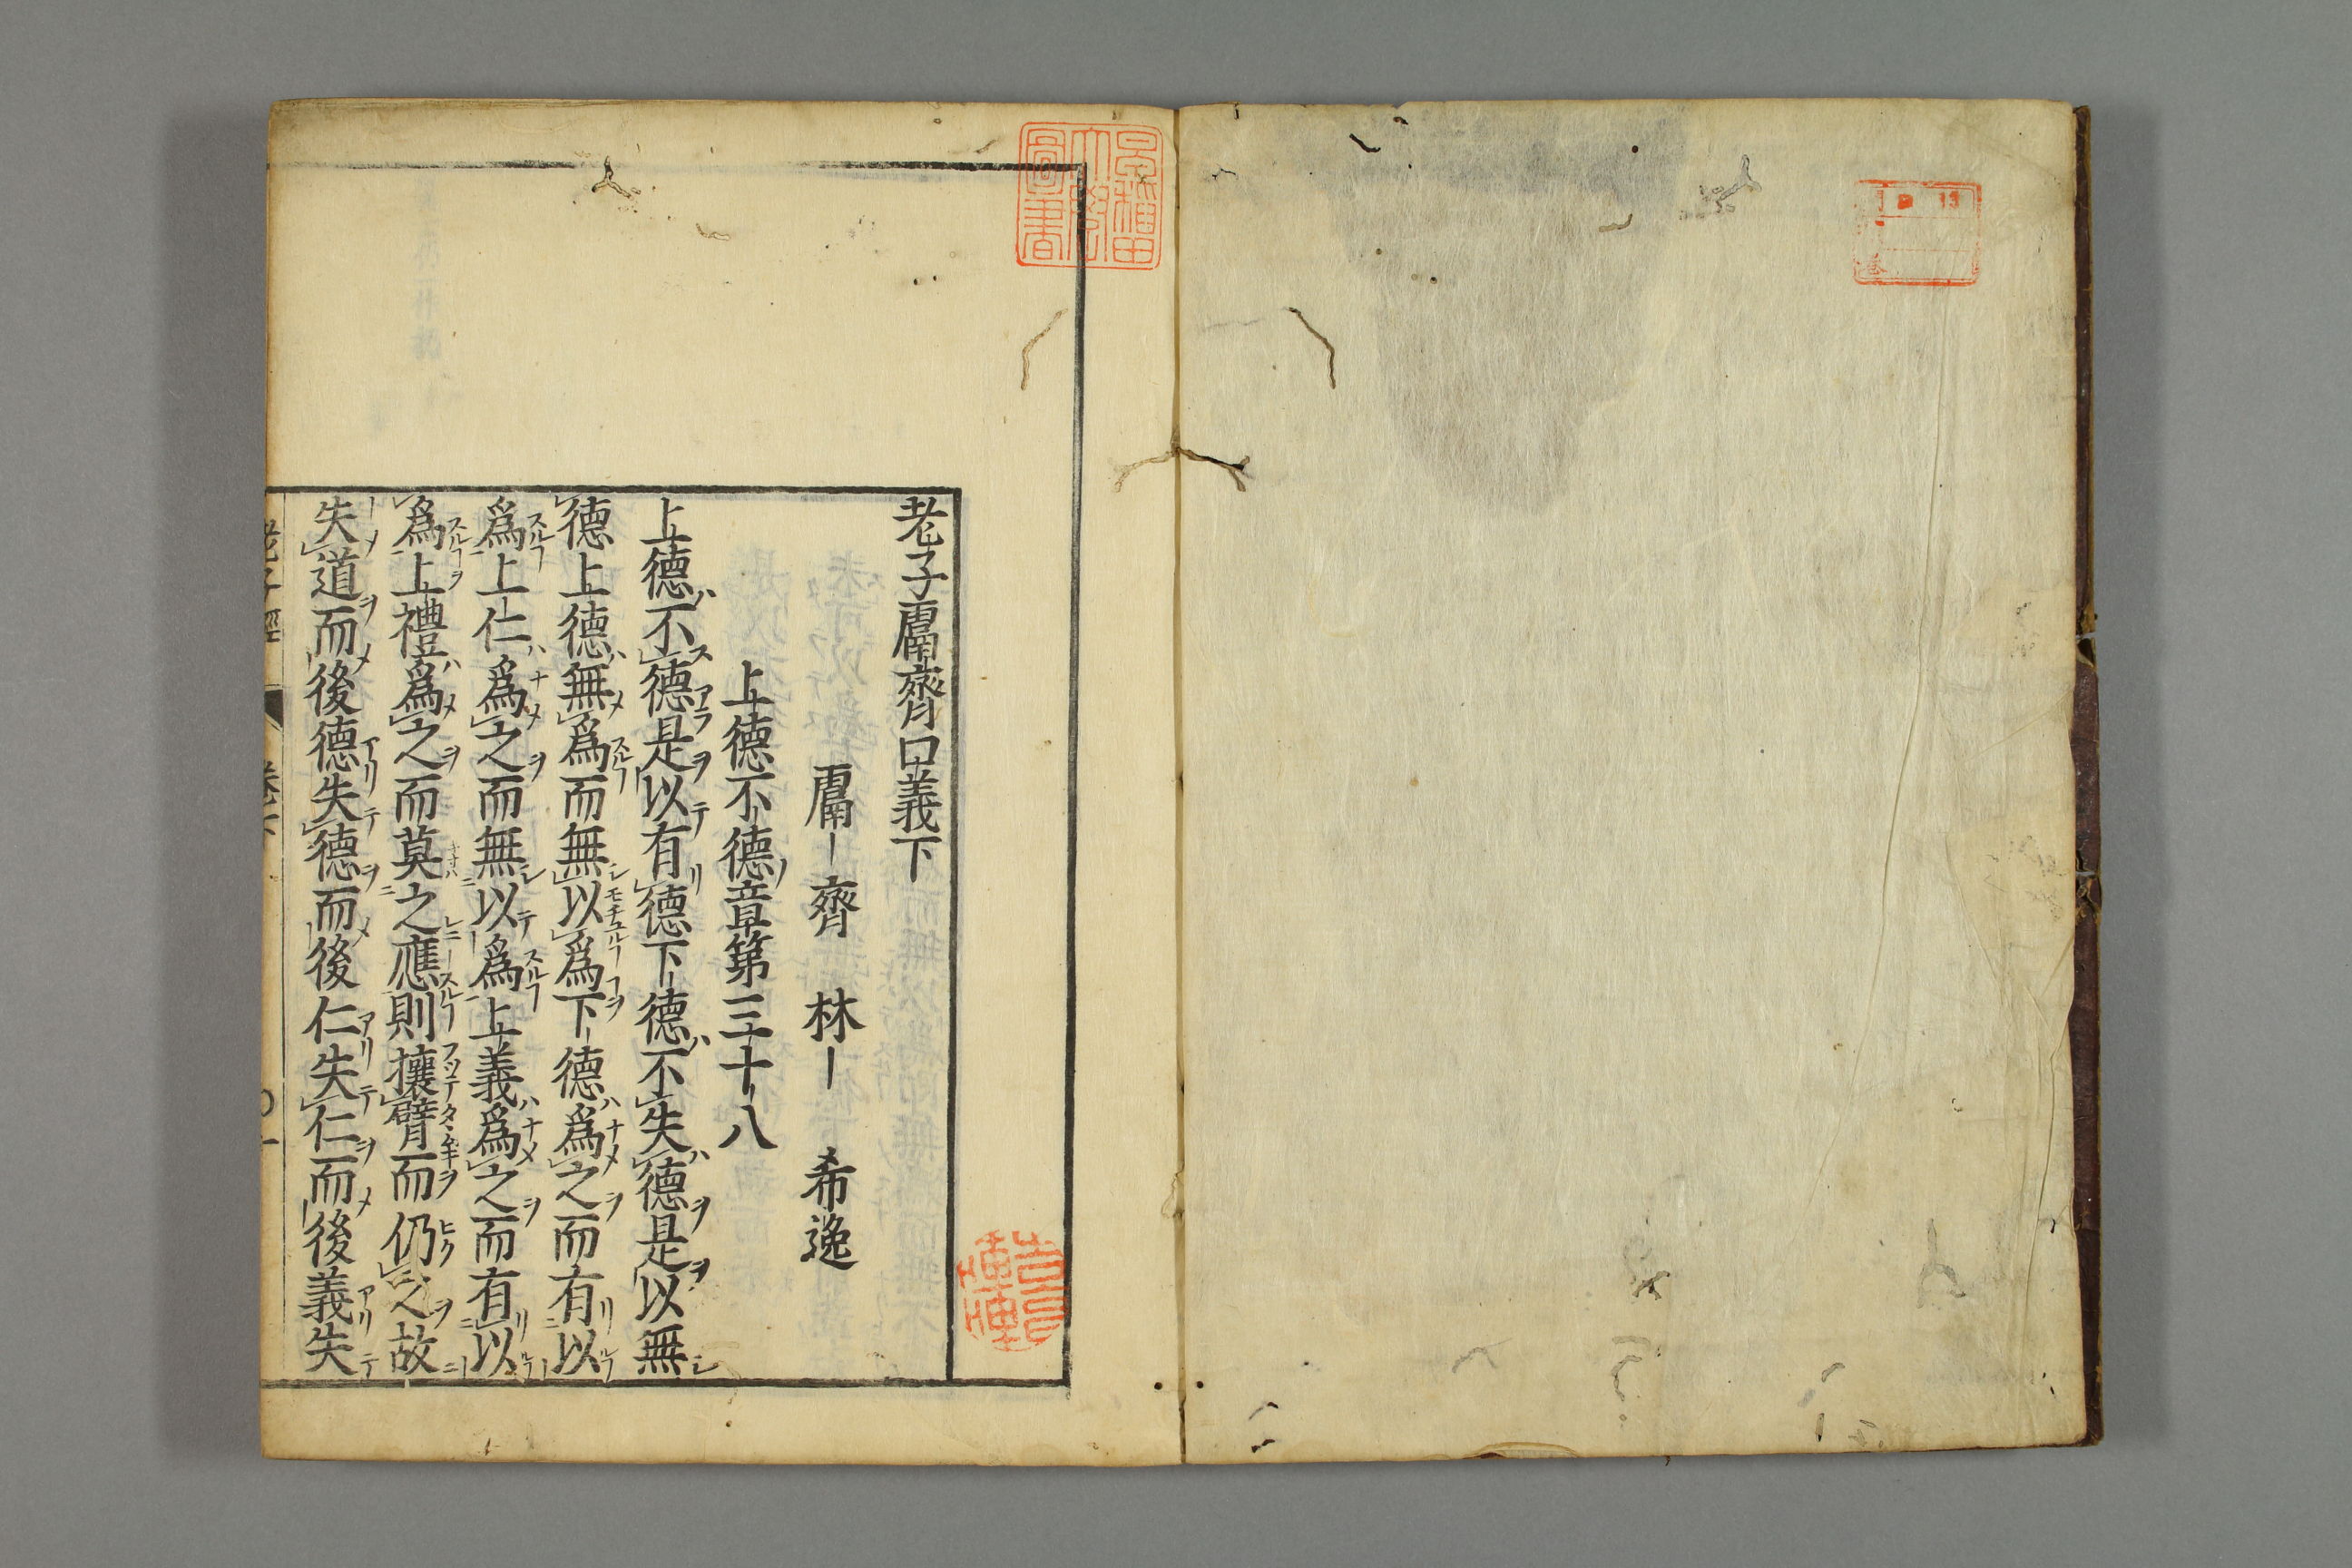 老子鬳齋口義下
鬳齋 林 希逸
上德不德章第三十八
上德不德是以有德下德不失德是以無
德上德無爲而無以爲下德爲之而有以
爲上仁爲之而無以爲上義爲之而有以
爲上禮爲之而莫之應則攘臂而仍之故
失道而後德失德而後仁失仁而後義失
老子經 卷下 〇一
早稲田
大學
圖書